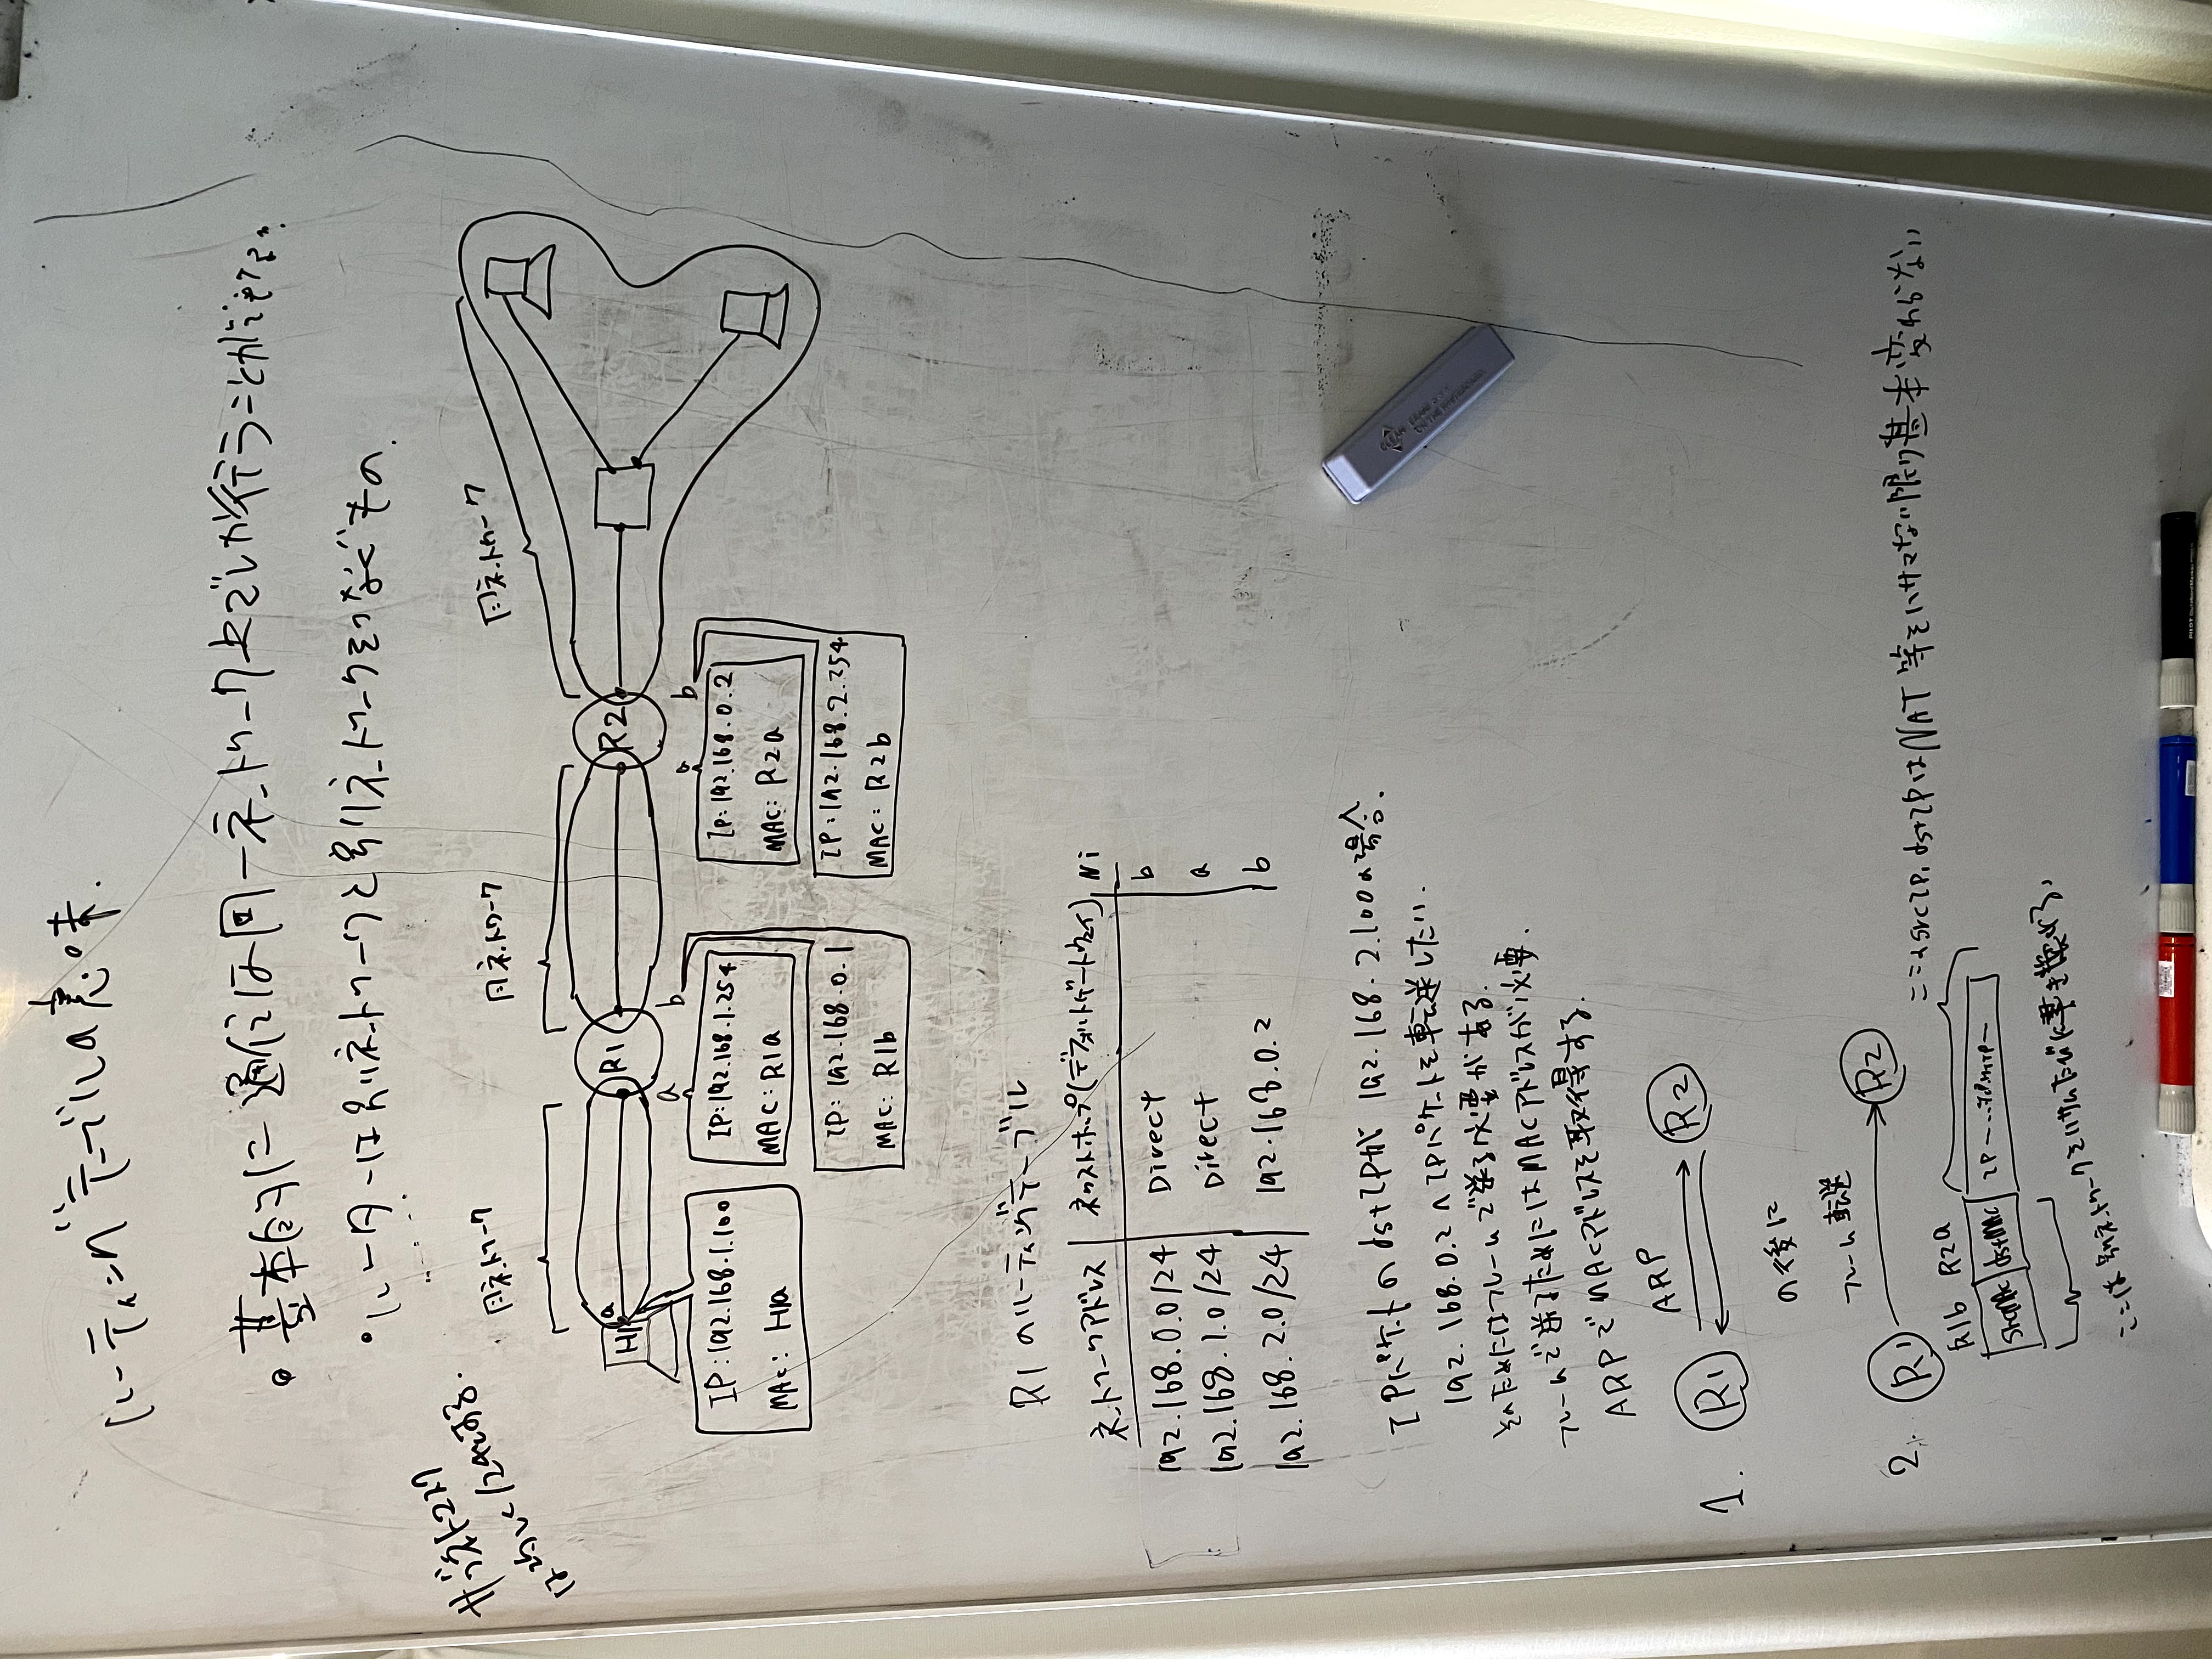 ルーティングテーブルの意味.
・基本的に通信は同一ネットワーク上でしか行うことができる。
・ルーターは別ネットワークと別ネットワークをつなぐもの.
サブネットマスク
は等しく/24である.
同ネットワーク
同ネットワーク
同ネットワーク
H1 a
R1
R2
a
b
a
b
IP:192.168.1.100
MAC: H1a
IP:192.168.1.254
MAC: R1a
IP: 192.168.0.1
MAC: R1b
IP: 192.168.0.2
MAC: R2a
IP:192.168.2.254
MAC: R2b
R1のルーティングテーブル
ネットワークアドレス ネクストホップ(デフォルトゲートウェイ) Ni
192.168.0.0/24 Direct b
192.168.1.0/24 Direct a
192.168.2.0/24 192.168.0.2 b
IPパケットのdstIPが 192.168.2.100の場合.
192.168.0.2へIPパケットを転送したい.
そのためにはフレームで送る必要がある.
フレームで送るためにはMACアドレスが必要.
ARPでMACアドレスを取得する.
1. R1 ARP R2
の後に
フレーム転送
2. R1 R2
ここのsrcIP, dstIPはNAT等をハサマない限り基本変わらない
R1b R2a
srcMAC dstMAC IP
ここは別ネットワークをハサムたびに書き換わる.
PILOT